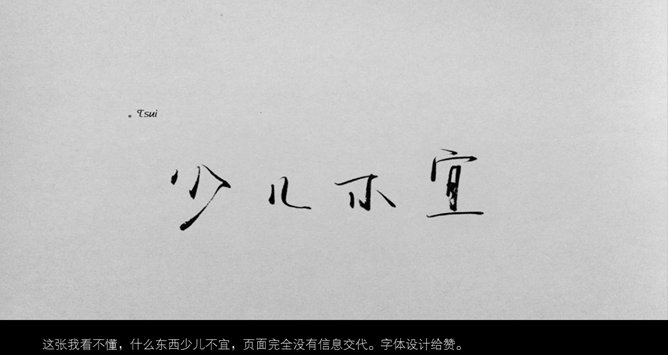 Tsui
少儿不宜
这张我看不懂，什么东西少儿不宜，页面完全没有信息交代。字体设计给赞。